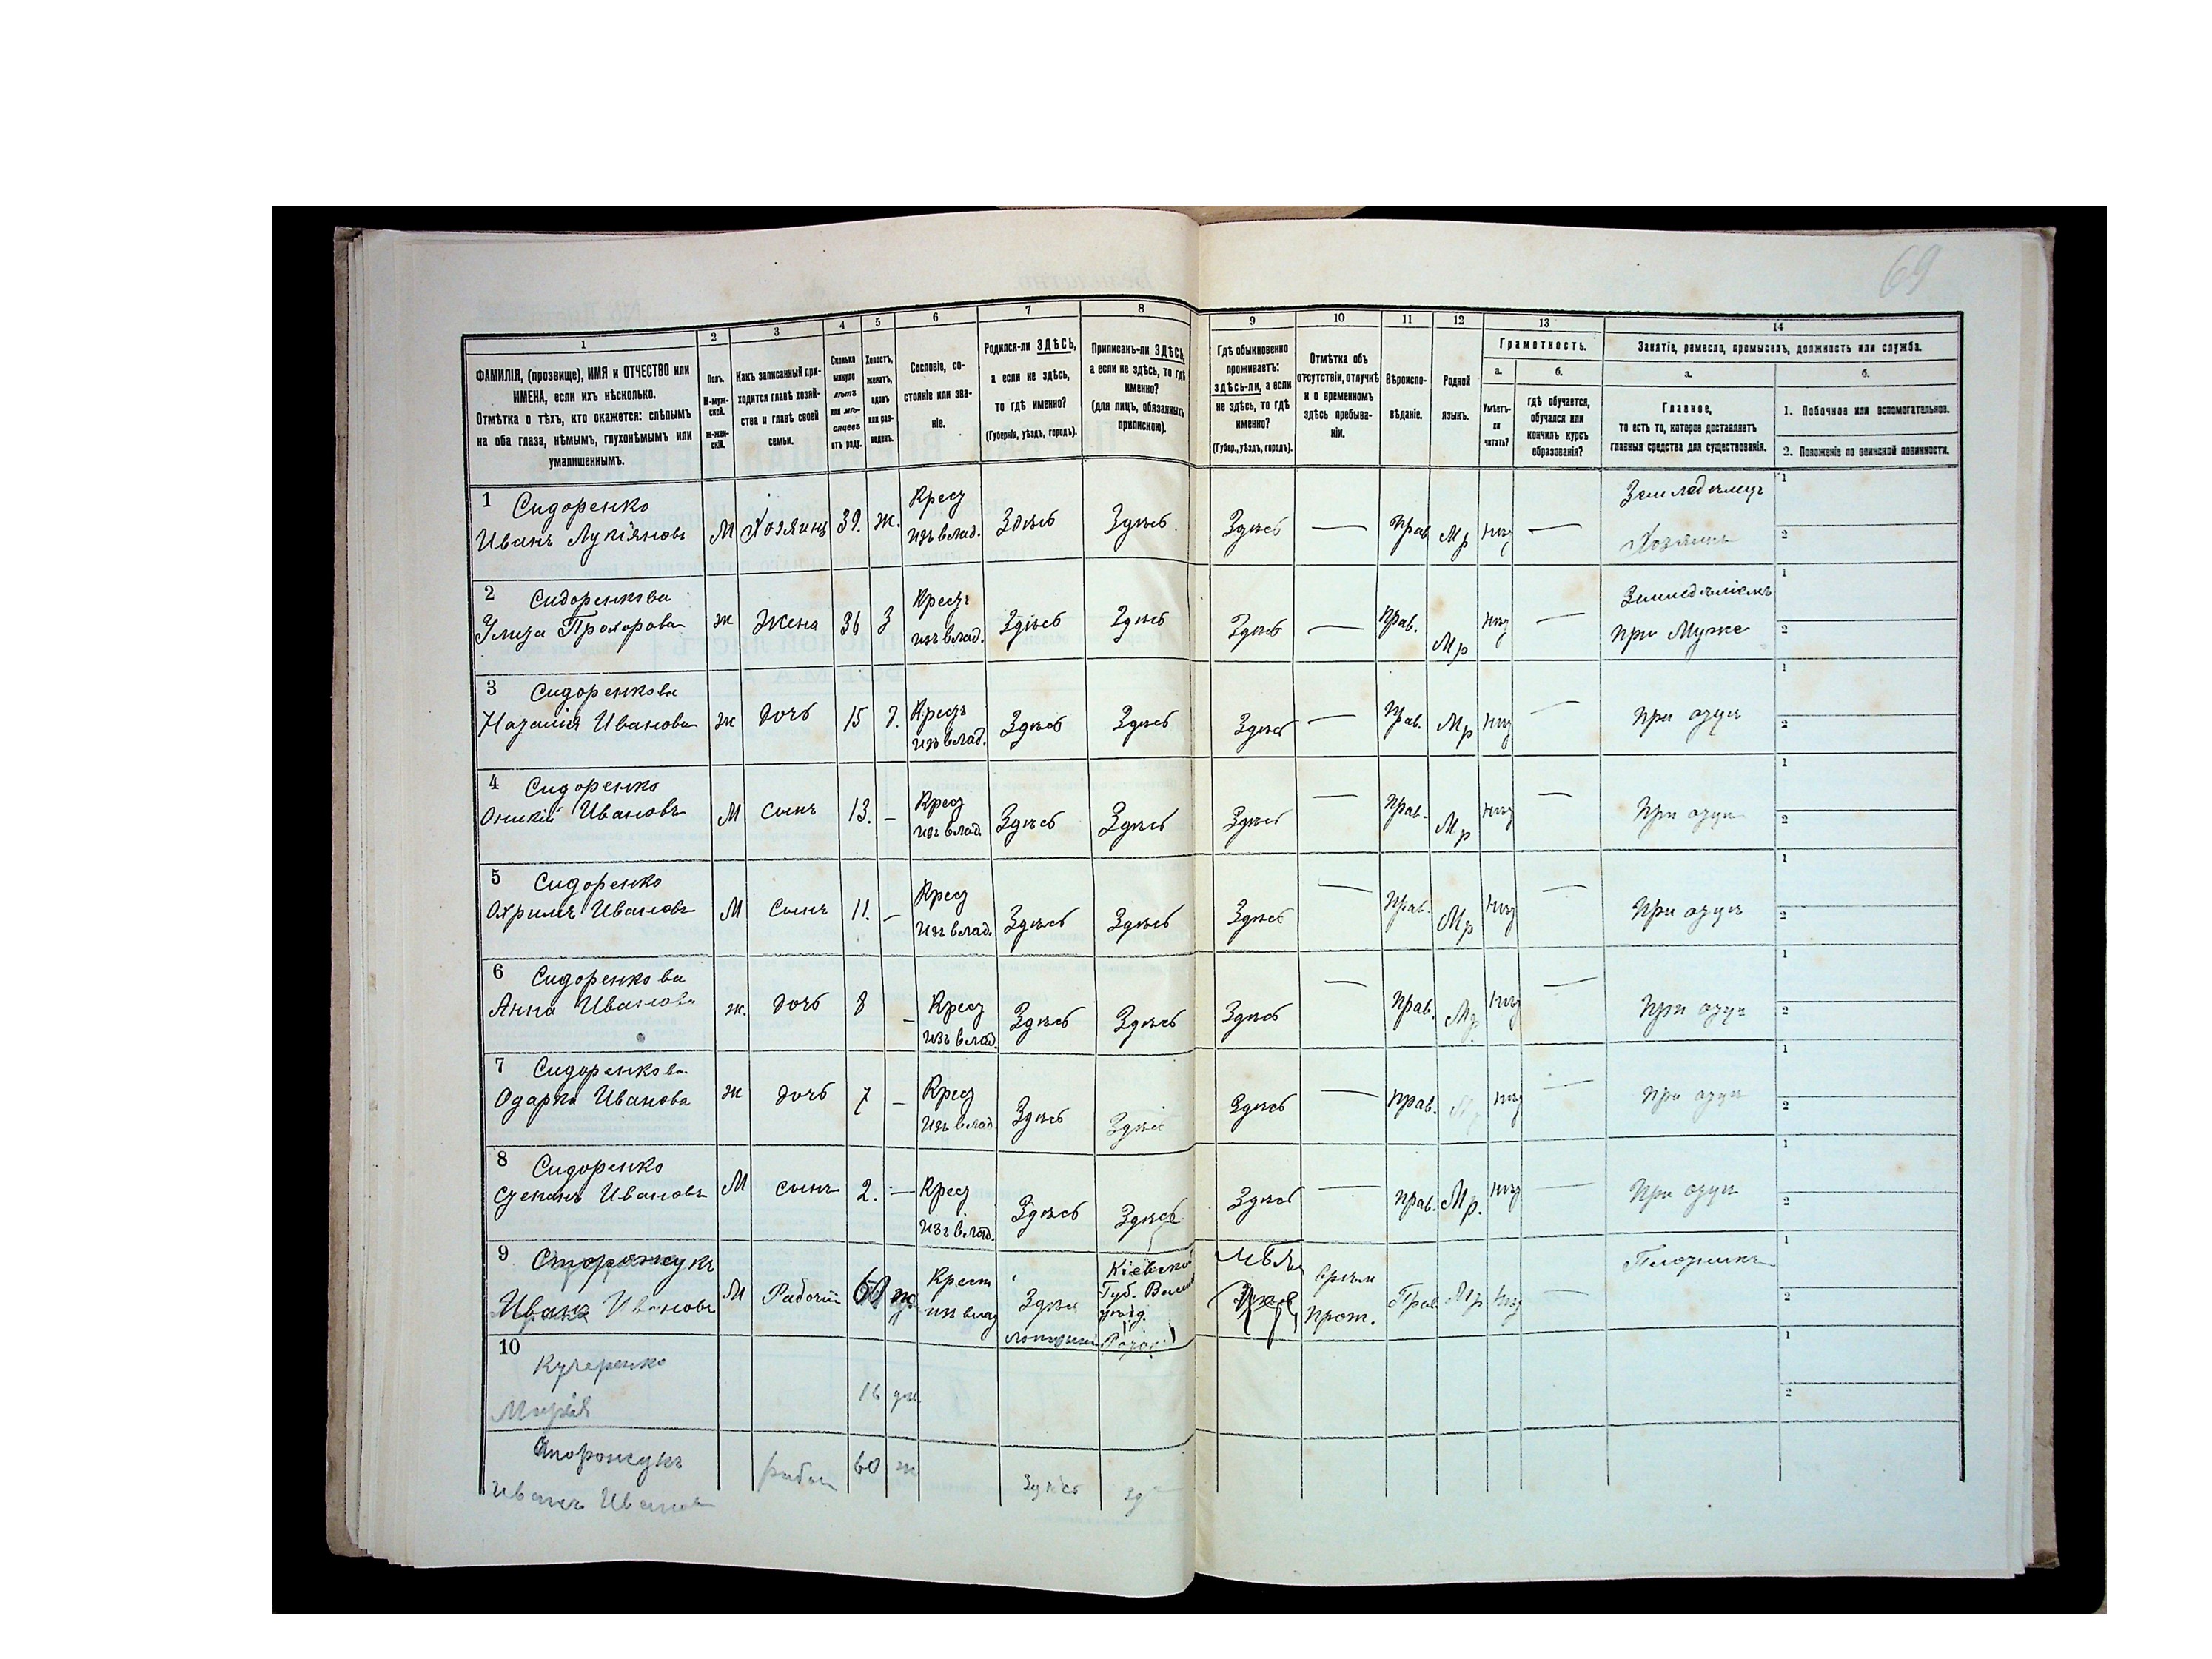 69
1 2 3 4 5 6 7 8 9 10 11 12 13 14
ФАМИЛІЯ, (прозвище), ИМЯ и ОТЧЕСТВО или
ИМЕНА, если ихъ нѣсколько.
Отмѣтка о тѣхъ, кто окажется: слѣпымъ
на оба глаза, нѣмымъ, глухонѣмымъ или
умалишеннымъ.
Полъ.
М-муж-
ской.
ж-жен-
скій.
Какъ записанный при-
ходится главѣ хозяй-
ства и главѣ своей
семьи.
Сколько
минуло
лѣтъ
или мѣ-
сяцевъ
отъ роду.
Холостъ,
женатъ,
вдовъ
или раз-
веденъ.
Сословіе, со-
стояніе или зва-
ніе.
Родился-ли ЗДѢСЬ,
а если не здѣсь,
то гдѣ именно?
(Губернія, уѣздъ, городъ).
Приписанъ-ли ЗДѢСЬ,
а если не здѣсь, то гдѣ
именно?
(для лицъ, обязанныхъ
припискою).
Гдѣ обыкновенно
проживаетъ:
здѣсь-ли, а если
не здѣсь, то гдѣ
именно?
(Губер., уѣздъ, городъ).
Отмѣтка объ
отсутствіи, отлучкѣ
и о временномъ
здѣсь пребыва-
ніи.
Вѣроиспо-
вѣданіе.
Родной
языкъ.
Грамотность.
а.
Умѣетъ-
ли
читать?
б.
гдѣ обучается,
обучался или
кончилъ курсъ
образованія?
Занятіе, ремесло, промыселъ, должность или служба.
а.
Главное,
то есть то, которое доставляетъ
главныя средства для существованія.
б.
1. Побочное или вспомогательное.
2. Положеніе по воинской повинности.
1 Сидоренко Крест Земледѣлецъ 1
Иванъ Лукіяновъ М Хозяинъ 39. ж. изъ влад. Здѣсь Здѣсь Здѣсь — Прав Мр нѣт — Хозяинъ 2
2 Сидоренкова Крестъ 1
Прохорова ж Жена 36 З изъ влад. Здѣсь Здѣсь Здѣсь — Прав. Мр нѣт — при Муже 2
3 Сидоренкова Крестъ 1
Наталія Иванова ж дочь 15 д. изъ влад. Здѣсь Здѣсь Здѣсь — Прав. Мр нѣт — При отцѣ 2
4 Сидоренко Крест 1
Оникій Ивановъ М сынъ 13. – изъ влад Здѣсь Здѣсь Здѣсь — Прав. Мр нѣт — При отцѣ 2
5 Сидоренко Крест 1
Охримъ Ивановъ М Сынъ 11. – Изъ влад. Здѣсь Здѣсь Здѣсь — Прав. Мр нѣт — При отцѣ 2
6 Сидоренкова Крест 1
Анна Иванова ж. дочь 8 – изъ влад. Здѣсь Здѣсь Здѣсь — Прав. Мр. нѣт — При отцѣ 2
7 Сидоренкова Крест 1
Одарка Иванова ж дочь 7 – Изъ влад. Здѣсь Здѣсь Здѣсь — Прав. нѣт — При отцѣ 2
8 Сидоренко Крест 1
Степанъ Ивановъ М сынъ 2. — изъ влад. Здѣсь Здѣсь Здѣсь — прав. Мр. нѣт — При отцѣ 2
9 Сторожукъ Крест Кіевской Плотникъ 1
Иванъ Ивановъ М Рабочій 60 ж изъ влад Здѣсь Губ. уѣзд. прож. Прав Мр нѣт — 2
10 Кучеренко 1
Марія 16 2
Сторожукъ
Иванъ Иванов 60 ж Здѣсь